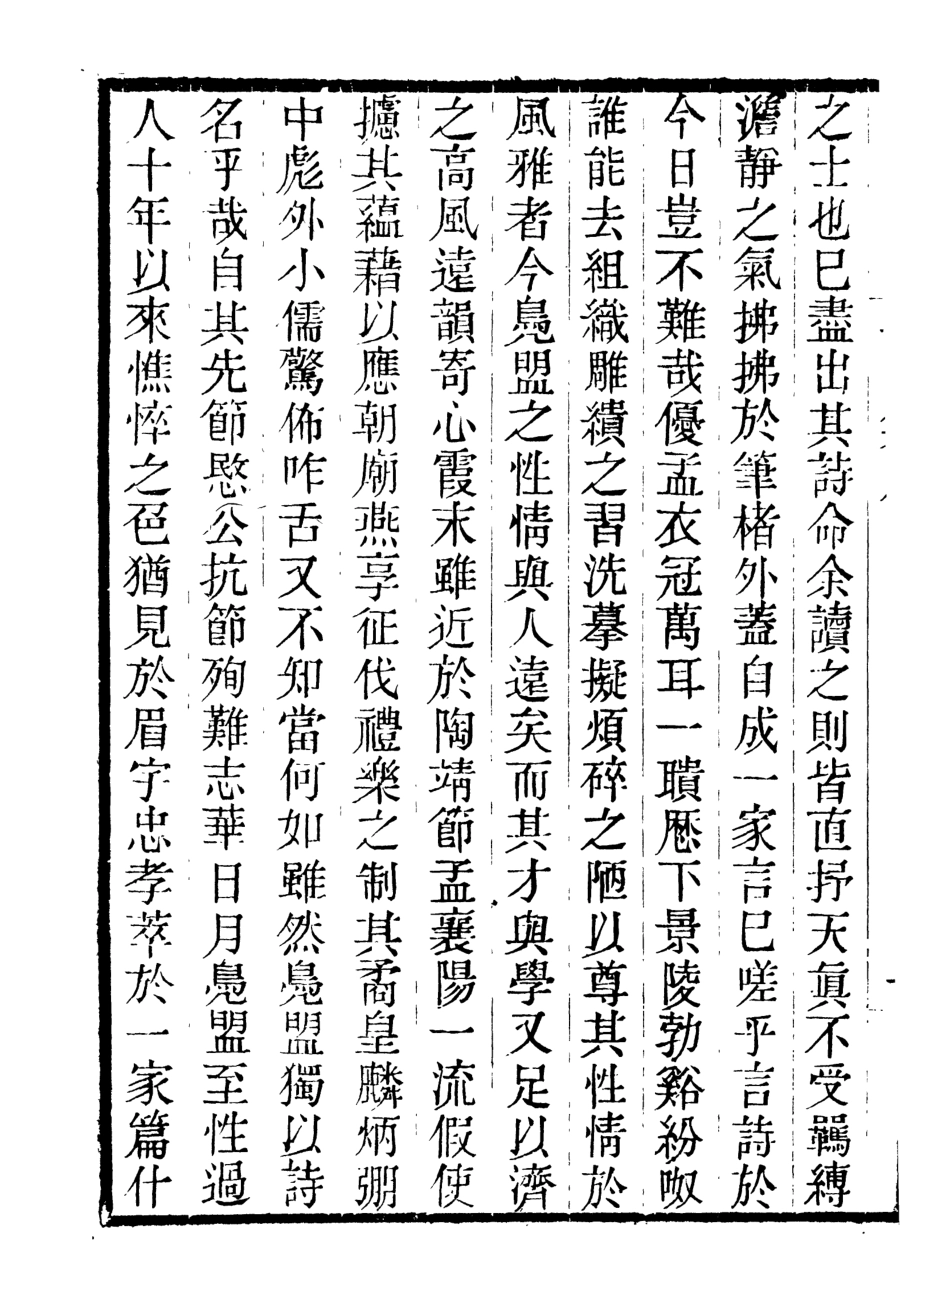 之士也已盡出其詩命余讀之則皆直抒天眞不受羈縛
澹靜之氣拂拂於筆楮外蓋自成一家言已嗟乎言詩於
今日豈不難哉優孟衣冠萬耳一聵厯下景陵勃谿紛呶
誰能去組織雕繢之習洗摹擬煩碎之陋以尊其性情於
風雅者今鳧盟之性情與人遠矣而其才與學又足以濟
之高風遠韻寄心霞末雖近於陶靖節孟襄陽一流假使
攄其蘊藉以應朝廟燕享征伐禮樂之制其矞皇麟炳弸
中彪外小儒驚怖咋舌又不知當何如雖然鳧盟獨以詩
名乎哉自其先節愍公抗節殉難志華日月鳧盟至性過
人十年以來憔悴之色猶見於眉宇忠孝萃於一家篇什